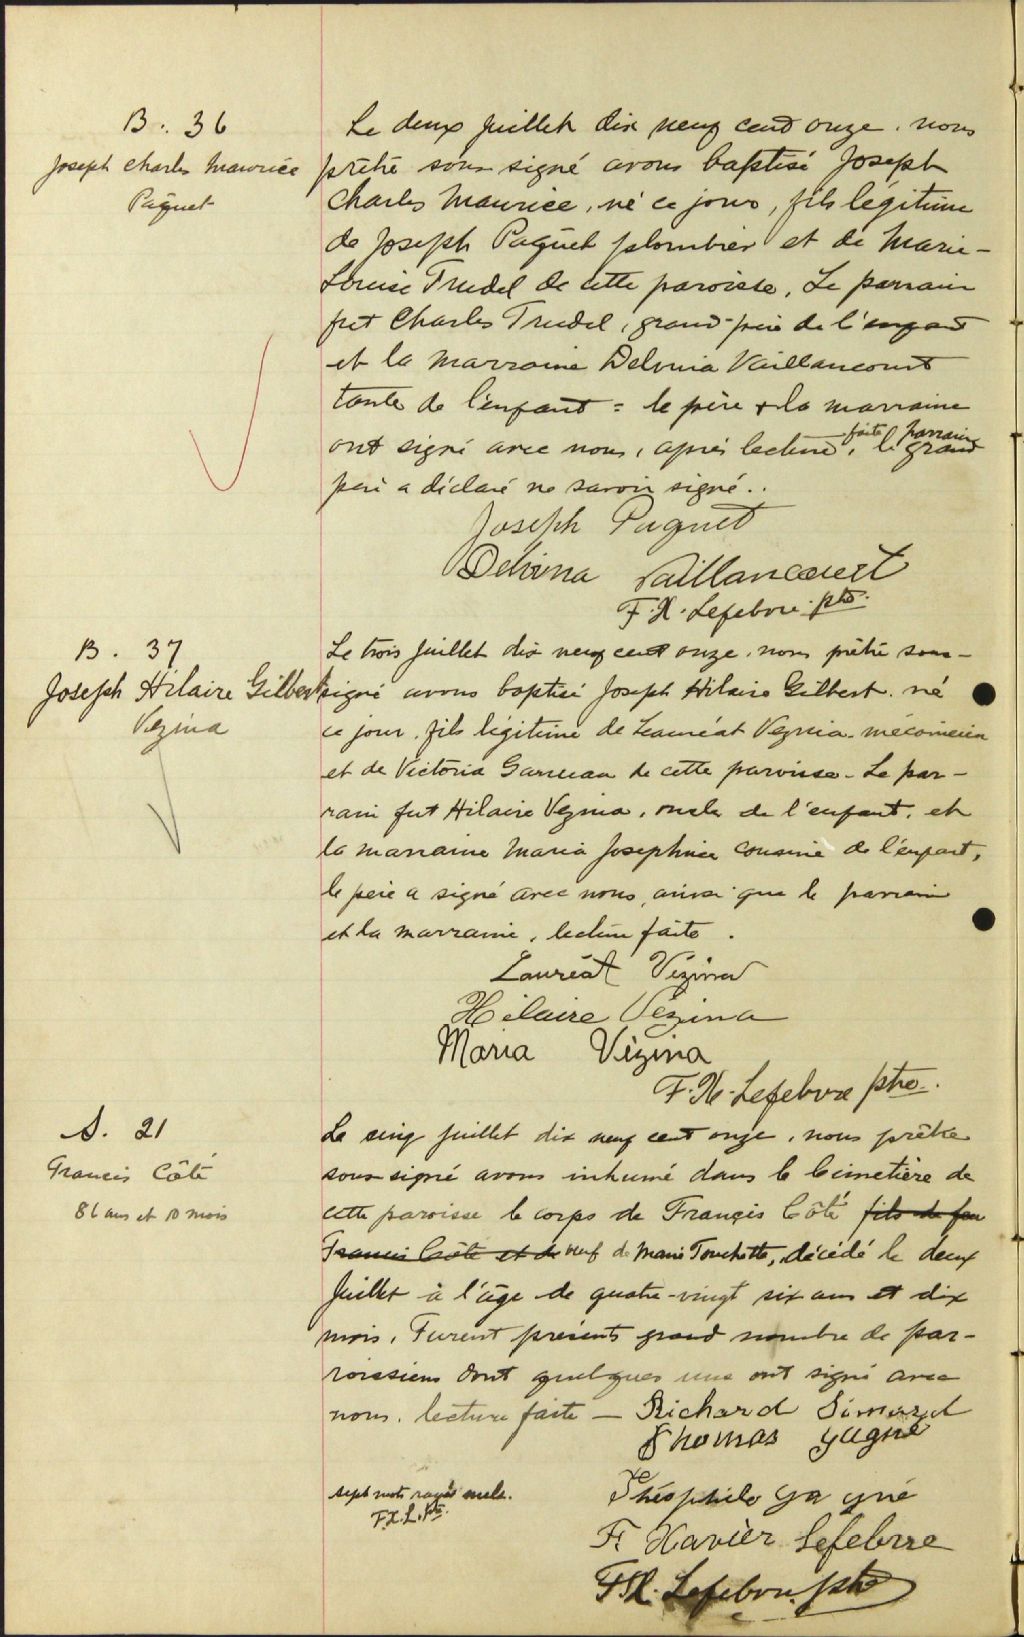 B. 36
Joseph Charles Maurice
Pâquet
Le deux Juillet dix neuf cent onze. nous
prêtre sous-signé avons baptisé Joseph
Charles Maurice, né ce jour, fils légitime
de Joseph Pâquet plombier et de Marie-
Louise Trudel de cette paroisse. Le parrain
fut Charles Trudel, grand-père de l'enfant
et la marraine Delvina Vaillancourt
tante de l'enfant = le père & la marraine
ont signé avec nous, après lecture faite, le parrain grand
père a déclaré ne savoir signé..
Joseph Paquet
Delvina Vaillancourt
F.X. Lefebvre ptre.
B. 37
Joseph Hilaire Gilbert
Vezina
Le trois Juillet dix neuf cent onze. nous prêtre sous-
signé avons baptisé Joseph Hilaire Gilbert. né
ce jour, fils légitime de Lauréat Vezina mécanicien
et de Victoria Garneau de cette paroisse. Le par-
rain fut Hilaire Vezina, oncle de l'enfant, et
la marraine Maria Josephine cousine de l'enfant,
le père a signé avec nous, ainsi que le parrain
et la marraine, lecture faite.
Lauréat Vézina
Hilaire Vézina
Maria Vézina
F.X. Lefebvre ptre.
S. 21
Francis Côté
86 ans et 10 mois
Le cinq Juillet dix neuf cent onze, nous prêtre
sous-signé avons inhumé dans le Cimetière de
cette paroisse le corps de François Côté fils de feu
Francis Côté et de veuf de Marie Touchette, décédé le deux
Juillet à l'âge de quatre-vingt six ans et dix
mois. Furent présents grand nombre de par-
roissiens dont quelques uns ont signé avec
nous. lecture faite — Richard Simard
Thomas Gagné
sept mots rayés nuls.
F.X.L. Ptre.
Théophile Gagné
F. Xavier Lefebvre
F.X. Lefebvre. ptre